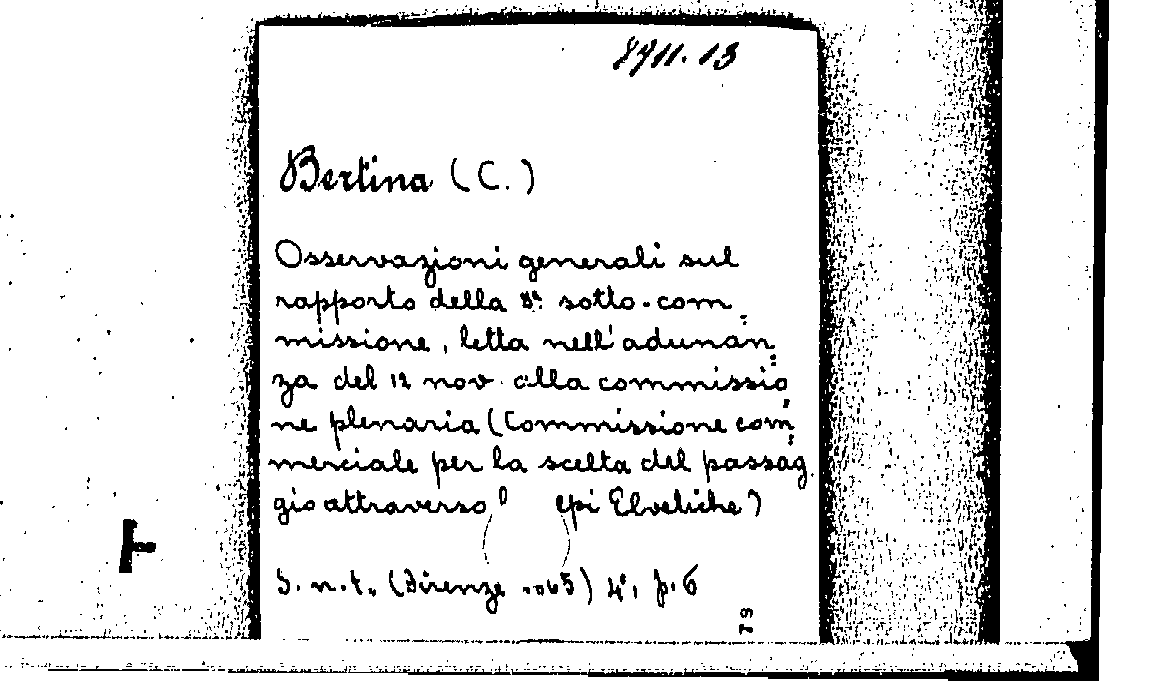 8911.13
Bertina (C.)
Osservazioni generali sul
rapporto della 3ª sotto-com
missione, letta nell'adunan
za del 12 nov. alla commissio
ne plenaria (Commissione com
merciale per la scelta del passag
gio attraverso l' epi Elvetiche)
S. n. t. (Firenze 65) 4°, p. 6
79